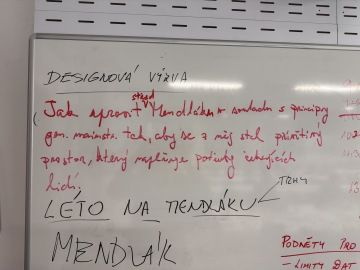 DESIGNOVÁ VÝZVA
střed
Jak upravit Mendlák v souladu s principy
gen. mainstr. tak, aby se z něj stal příjemný
prostor, který naplňuje potřeby čekajících
lidí.
TRHY
LÉTO NA MENDLÁKU
MENDLÁK
PODNĚTY PRO
LIMITY DAT